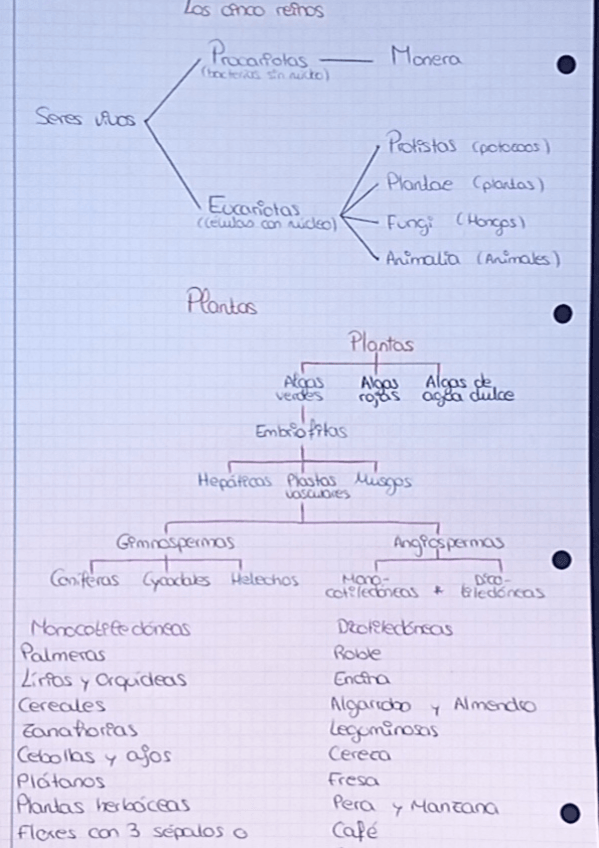 Los cinco reinos
Procariotas — Monera
(bacterias sin núcleo)
Seres vivos
Protistas (potocoos)
Plantae (plantas)
Eucariotas
(células con núcleo)
Fungi (Hongos)
Animalia (Animales)
Plantas
Plantas
Algas verdes
Algas rojas
Algas de agua dulce
Embriofitas
Hepáticas
Plastas vasculares
Musgos
Gimnospermas
Angiospermas
Coníferas
Cycadales
Helechos
Mono-
cotiledóneas *
Dico-
tiledóneas
Monocotiledóneas
Dicotiledóneas
Palmeras
Roble
Lirios y orquídeas
Encina
Cereales
Algarrobo y Almendro
Zanahorias
Leguminosas
Cebollas y ajos
Cereza
Plátanos
Fresa
Plantas herbáceas
Pera y Manzana
Flores con 3 sépalos o
Café